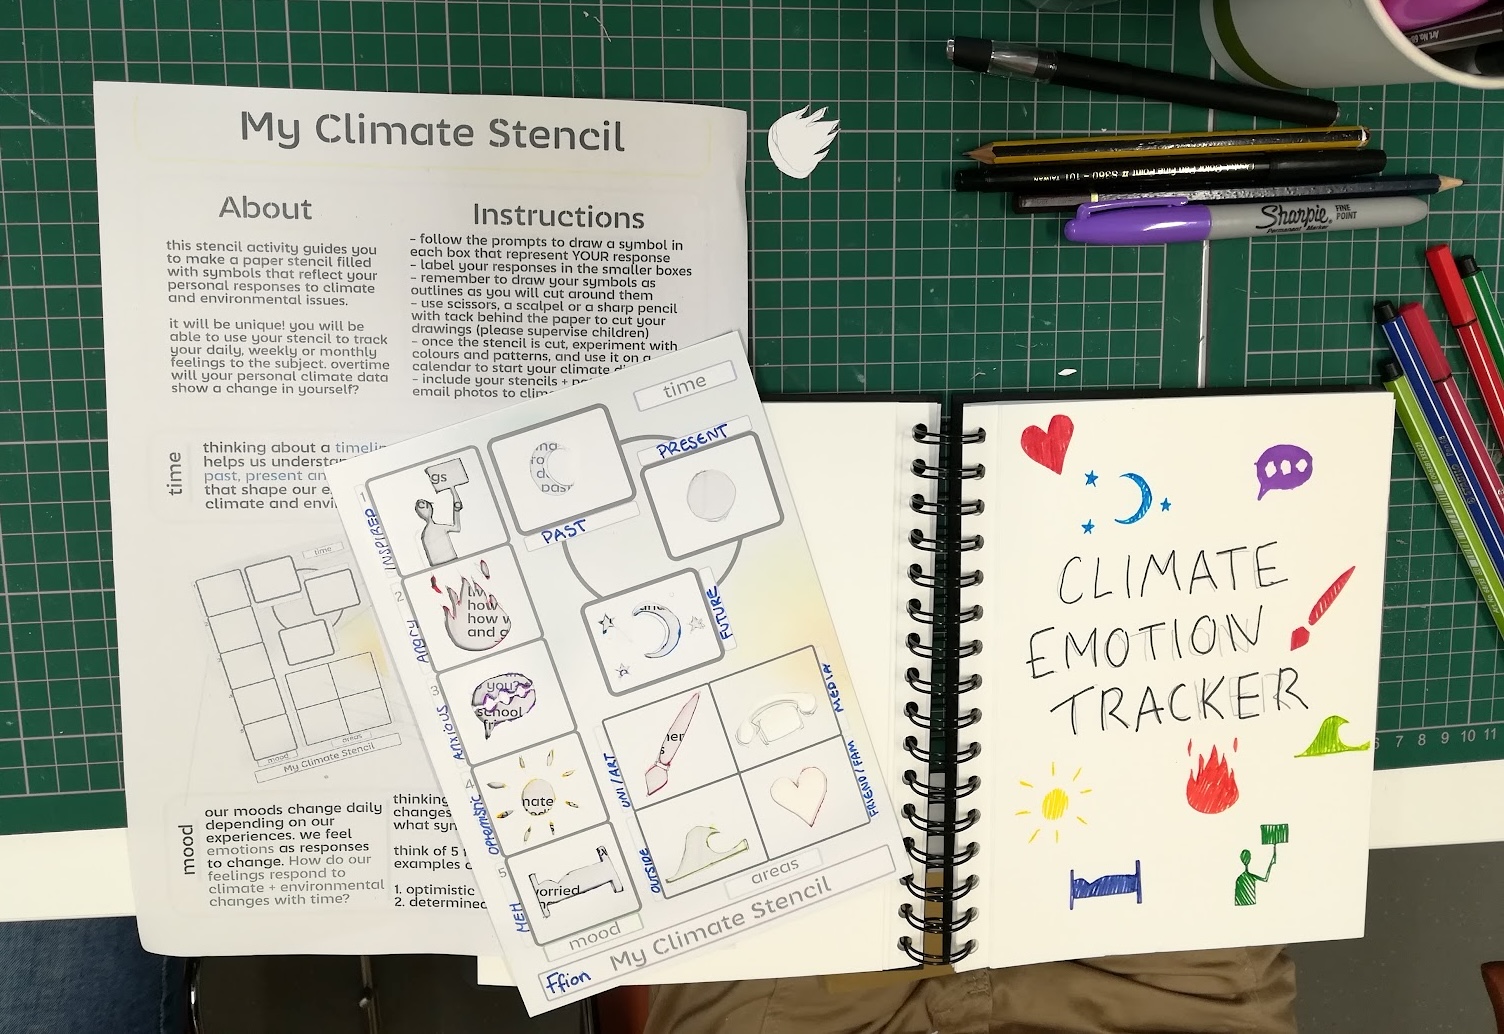 My Climate Stencil
About
this stencil activity guides you
to make a paper stencil filled
with symbols that reflect your
personal responses to climate
and environmental issues.
it will be unique! you will be
able to use your stencil to track
your daily, weekly or monthly
feelings to the subject. overtime
will your personal climate data
show a change in yourself?
Instructions
- follow the prompts to draw a symbol in
each box that represent YOUR response
- label your responses in the smaller boxes
- remember to draw your symbols as
outlines as you will cut around them
- use scissors, a scalpel or a sharp pencil
with tack behind the paper to cut your
drawings (please supervise children)
- once the stencil is cut, experiment with
colours and patterns, and use it on a
calendar to start your climate
- include your stencils +
email photos to
time
thinking about a
helps us
past, present
that shape our
climate and
time
mood
areas
My Climate Stencil
mood
our moods change daily
depending on our
experiences. we feel
emotions as responses
to change. How do our
feelings respond to
climate + environmental
changes with time?
thinking
changes
what
think of 5
examples
1. optimistic
2. determined
time
PRESENT
PAST
FUTURE
1
INSPIRED
2
ANGRY
how
how
and
3
ANXIOUS
you?
school
4
OPTIMISTIC
5
MEH
worried
mood
UNI/ART
MEDIA
OUTSIDE
FRIEND/FAM
areas
My Climate Stencil
Ffion
CLIMATE
EMOTION
TRACKER
Sharpie
FINE
POINT
Permanent Marker
6 7 8 9 10 11